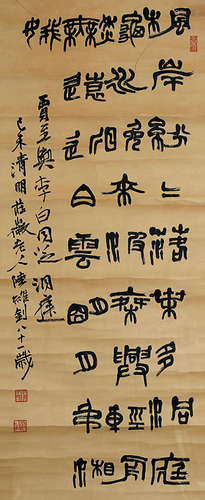 楓岸紛〻落葉多洞庭
秋水晚來波乘興輕舟
無近遠白雲明月弔湘
娥
賈至與李白同泛洞庭
己未清明莊徽老人陸維釗八十一歲